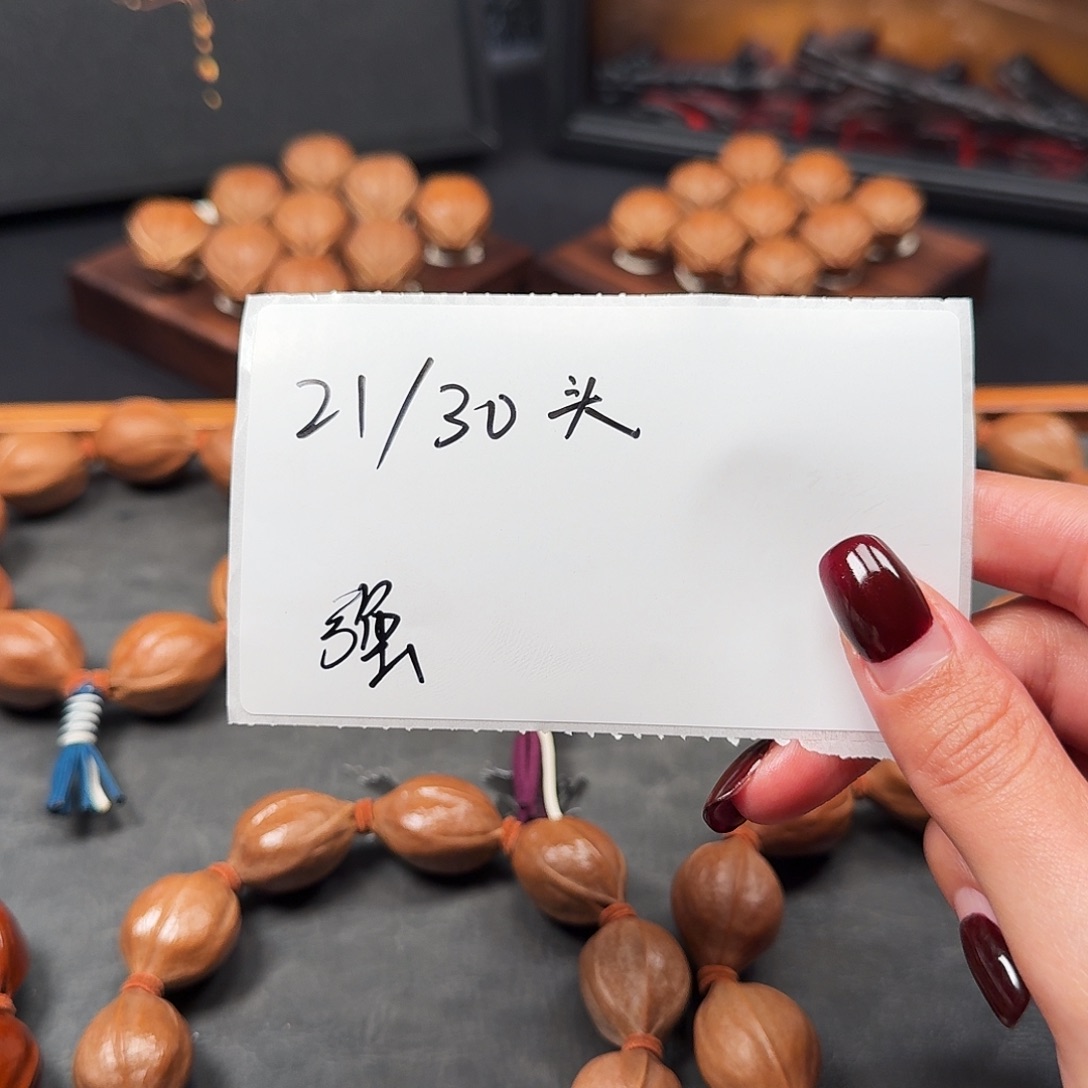 21/30头
强